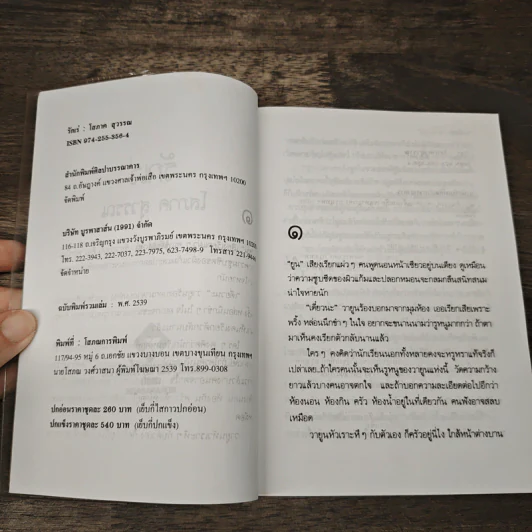 รัตเร่ : โสภาค สุวรรณ
ISBN 974-255-356-4
สำนักพิมพ์ศิลปาบรรณาคาร
84 ถ.อัษฎางค์ แขวงศาลเจ้าพ่อเสือ เขตพระนคร กรุงเทพฯ 10200
จัดพิมพ์
บริษัท บูรพาสาส์น (1991) จำกัด
116-118 ถ.เจริญกรุง แขวงวังบูรพาภิรมย์ เขตพระนคร กรุงเทพฯ
โทร. 222-3943, 222-7037, 223-7975, 623-7498-9 โทรสาร
จัดจำหน่าย
ฉบับพิมพ์รวมเล่ม : พ.ศ. 2539
พิมพ์ที่ : โสภณการพิมพ์
117/94-95 หมู่ 6 ถ.เอกชัย แขวงบางบอน เขตบางขุนเทียน กรุงเทพฯ
นายโสภณ วงศ์วาสนา ผู้พิมพ์โฆษณา 2539 โทร.899-0308
ปกอ่อนราคาชุดละ 260 บาท
ปกแข็งราคาชุดละ 540 บาท (เย็บกี่ปกแข็ง)
๑
"ยูน" เสียงเรียกแผ่วๆ คนพูดนอนหน้าเซียวอยู่บนเตียง ดูเหมือน
ว่าความซูบซีดของผิวแก้มและปลอกหมอนจะกลมกลืนสนิทสนม
น่าใจหายนัก
"เดี๋ยวนะ" วายูนร้องบอกมาจากมุมห้อง เออเรียกเสียเพราะ
พริ้ง หล่อนนึกขำๆ ในใจ อยากจะขนานนามว่ารูหนูมากกว่า ถ้าตา
มาเห็นคงเรียกตัวกลับบ้านแล้ว
ใครๆ คงคิดว่านักเรียนนอกทั้งหลายคงจะหรูหราแท้จริงก็
เปล่าเลย..ถ้าใครคนนั้นจะเห็นรูหนูของวายูนแห่งนี้ วัดความกว้าง
ยาวแล้วบางคนอาจตกใจ และถ้าบอกความละเอียดต่อไปอีกว่า
ห้องนอน ห้องกิน ครัว ห้องน้ำอยู่ในที่เดียวกัน คนฟังอาจสลบ
เหมือด
วายูนหัวเราะหึๆ กับตัวเอง ก็ครัวอยู่นี่ไง ใกล้หน้าต่างบาน